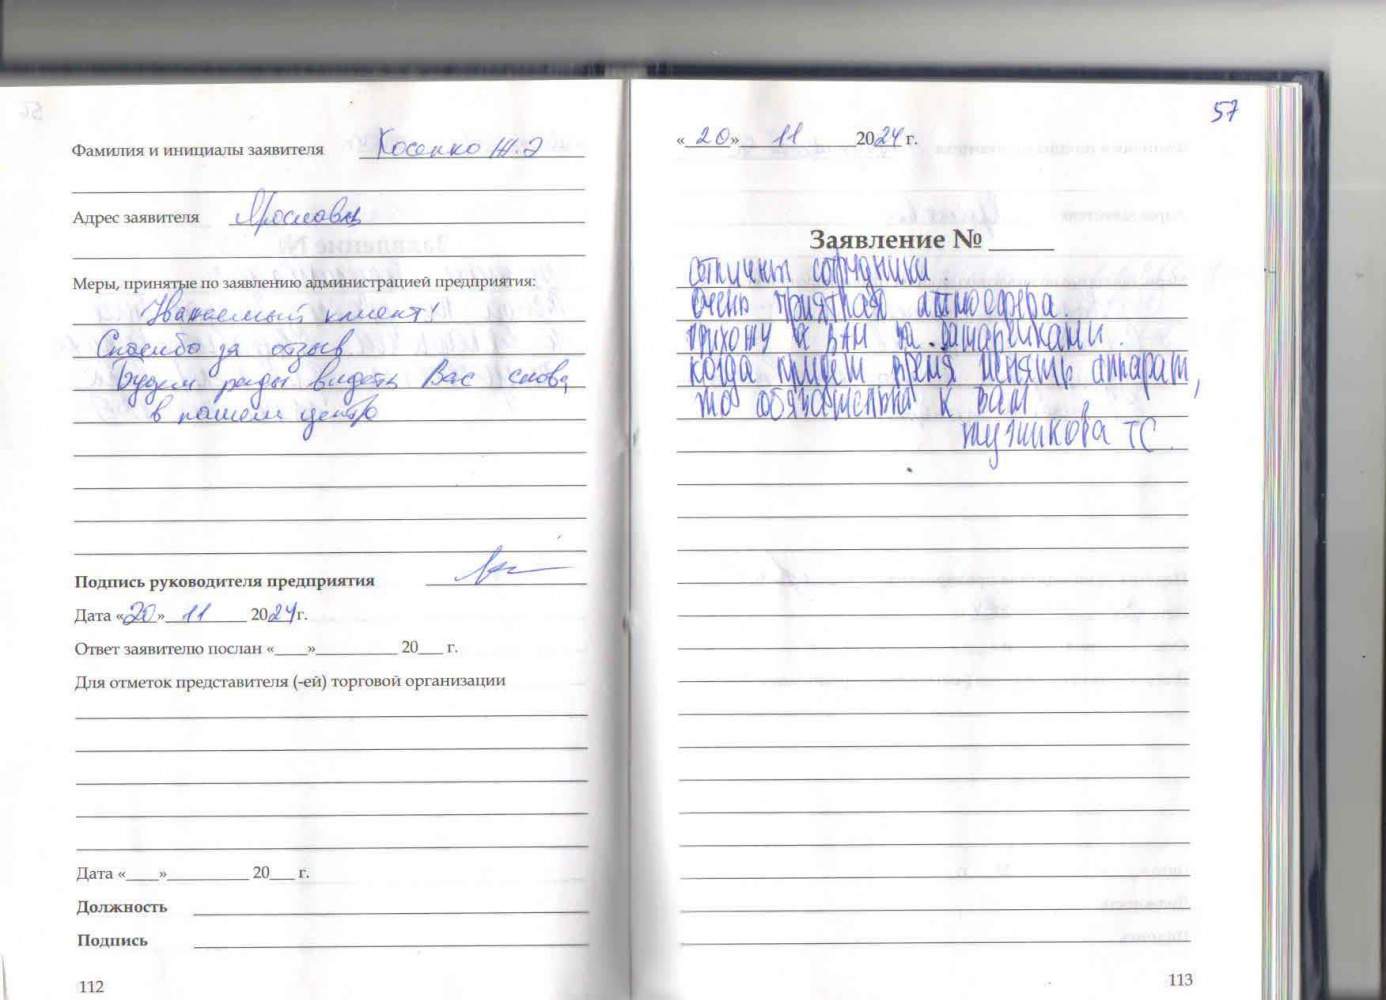 Фамилия и инициалы заявителя Косенко Ж.Э
Адрес заявителя Ярославец
Меры, принятые по заявлению администрацией предприятия:
Уважаемый клиент!
Спасибо за отзыв
Будем рады видеть Вас снова
в нашем центре
Подпись руководителя предприятия
Дата «20» 11 2024г.
Ответ заявителю послан «___»__________ 20___ г.
Для отметок представителя (-ей) торговой организации
Дата «____»__________ 20___ г.
Должность
Подпись
112
57
«20» 11 2024 г.
Заявление № _____
отличные сотрудники
очень приятная атмосфера.
прихожу к вам за батарейками.
когда придет время менять аппарат,
то обязательно к вам
ТС.
113